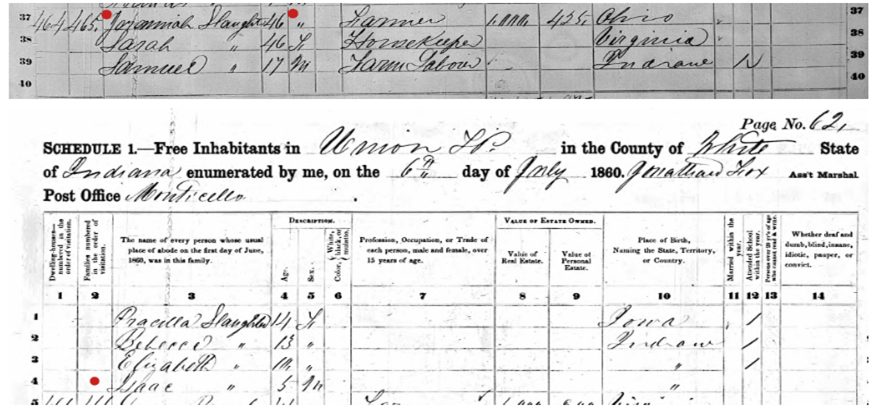 37 464 465 Jeremiah Slaughter 46 " Farmer 1,000 425 Ohio 37
38 Sarah " 46 F Housekeeper Virginia 38
39 Samuel " 17 M Farm Labour Indiana 39
40 40
Page No. 62
SCHEDULE 1.—Free Inhabitants in Union Tp. in the County of White State
of Indiana enumerated by me, on the 6th day of July 1860. Jonathan Fox Ass't Marshal
Post Office Monticello
Dwelling-houses—numbered in the order of visitation.
Families numbered in the order of visitation.
The name of every person whose usual place of abode on the first day of June, 1860, was in this family.
DESCRIPTION.
Age.
Sex.
Color, White, black, or mulatto.
Profession, Occupation, or Trade of each person, male and female, over 15 years of age.
VALUE OF ESTATE OWNED.
Value of Real Estate.
Value of Personal Estate.
Place of Birth, Naming the State, Territory, or Country.
Married within the year.
Attended School within the year.
Whether deaf and dumb, blind, insane, idiotic, pauper, or convict.
1 2 3 4 5 6 7 8 9 10 11 12 13 14
1 Pracilla Slaughter 14 F Iowa / 1
2 Rebecca " 13 " Indiana / 2
3 Elizabeth " " " / 3
4 Isaac " 5 M " 4
5 5